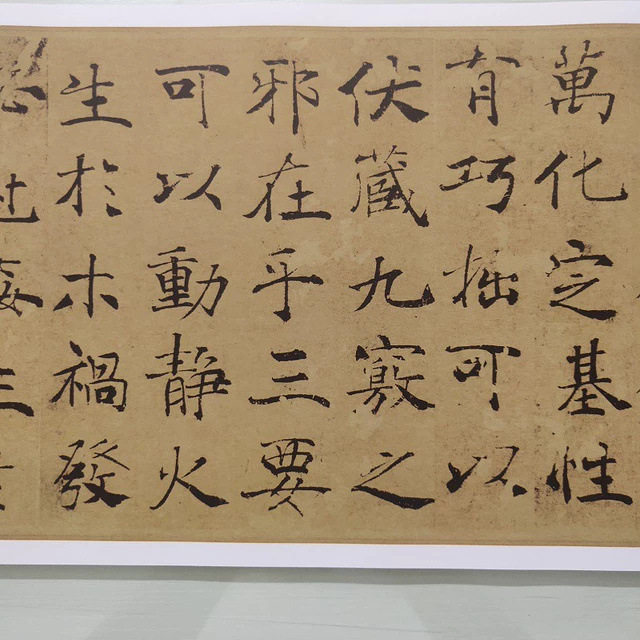 萬化定基性
有巧拙可以
伏藏九竅之
邪在乎三要
可以動靜火
生於木禍發
必過